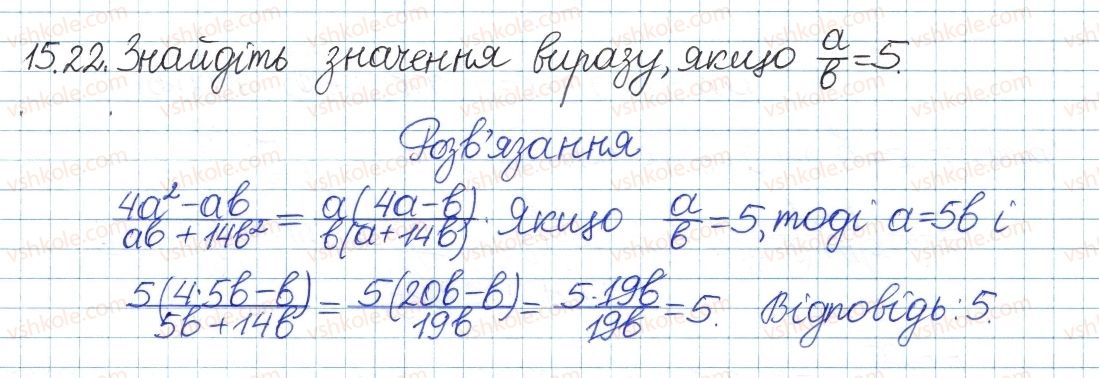 15.22. Знайдіть значення виразу, якщо a/b = 5.
Розв'язання
(4a² - ab)/(ab + 14b²) = a(4a - b)/b(a + 14b). Якщо a/b = 5, тоді a = 5b і
5(4·5b - b)/(5b + 14b) = 5(20b - b)/19b = 5·19b/19b = 5. Відповідь: 5.